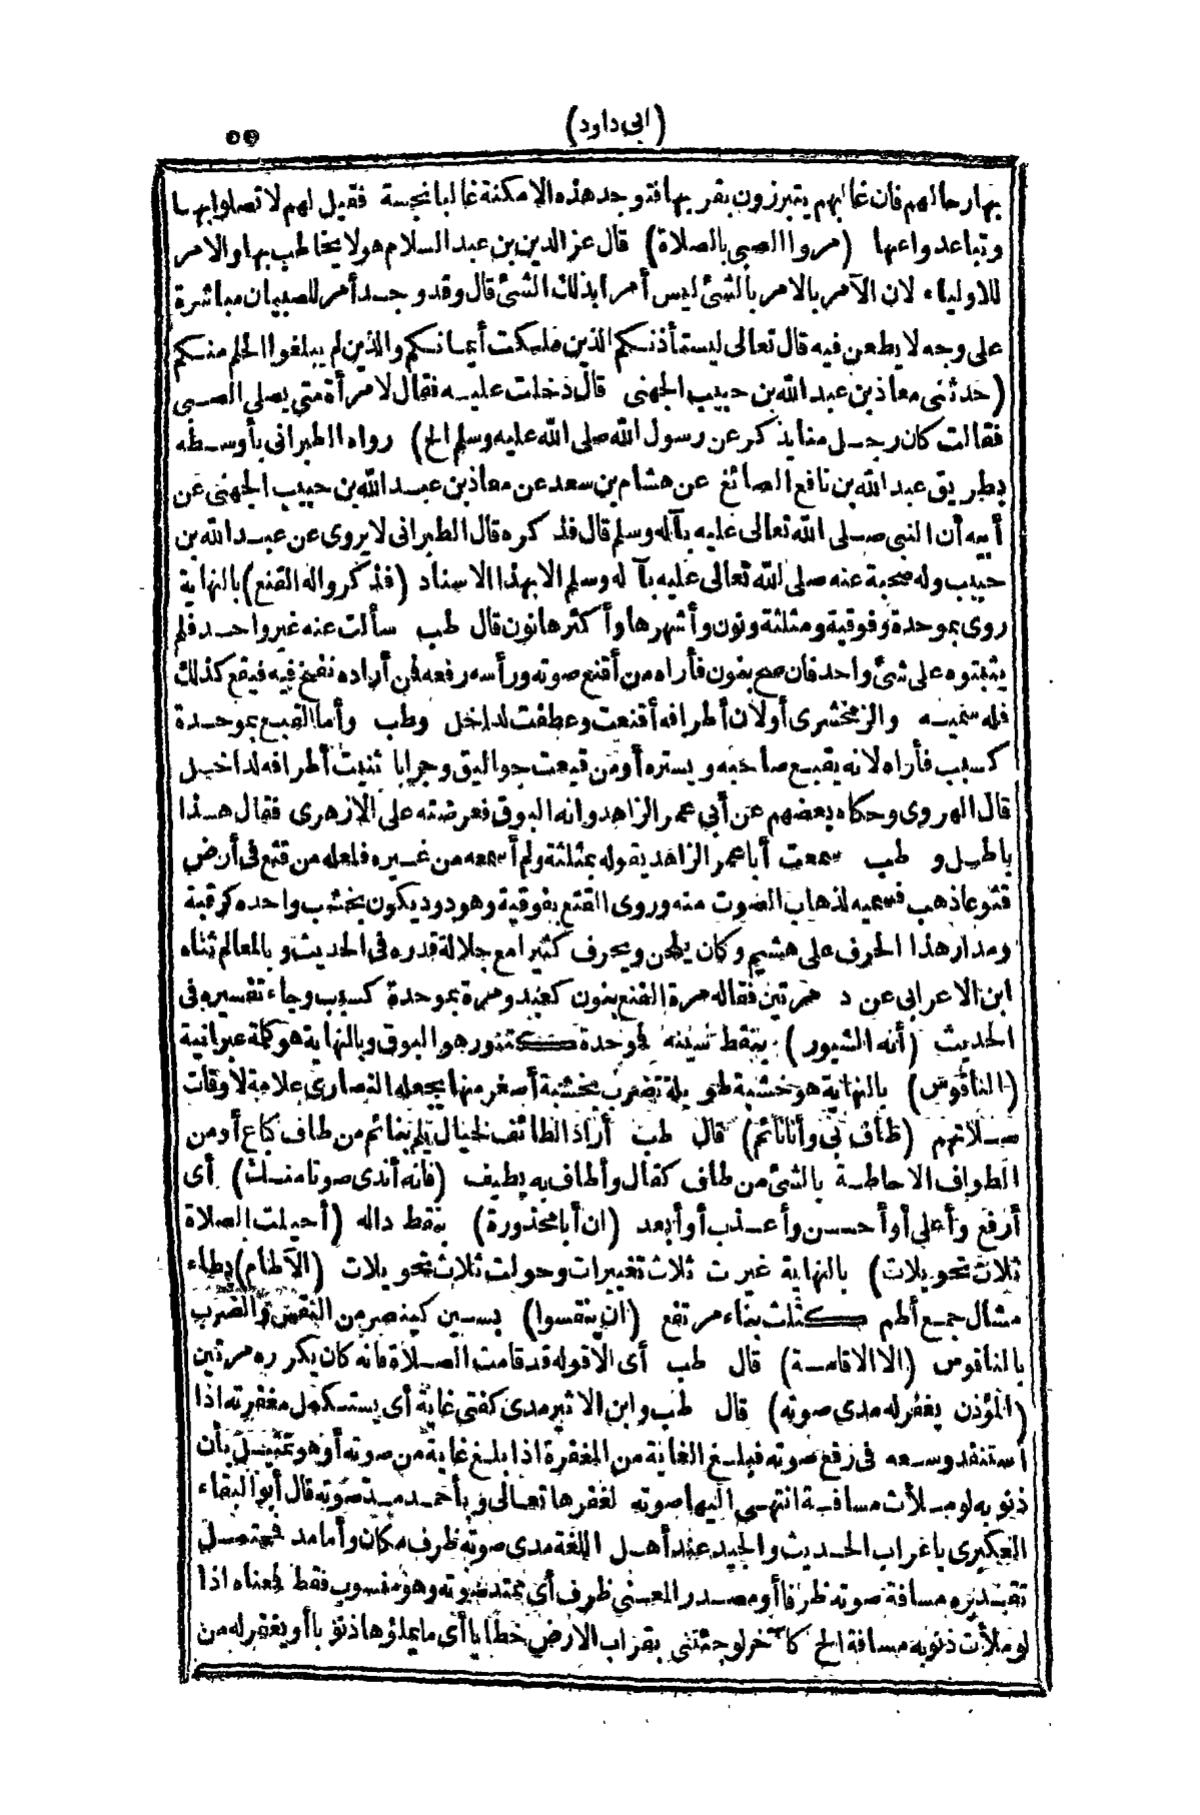 (ابى داود)
٥٥
بها رحالهم فان غالبهم يتبرزون بقربها فتوجد هذه الامكنة غالبا نجسة فقيل لهم لا تصلوا بها
وتباعدوا عنها (مروا الصبى بالصلاة) قال عز الدين بن عبد السلام هو لا يخاطب بها والامر
للاولياء لان الآمر بالامر بالشئ ليس أمرا بذلك الشئ قال وقد وجد أمر للصبيان مباشرة
على وجه لا يطعن فيه قال تعالى ليستأذنكم الذين ملكت أيمانكم والذين لم يبلغوا الحلم منكم
(حدثنى معاذ بن عبد الله بن حبيب الجهنى قال دخلت عليه فقال لامرأة متى يصلى الصبى
فقالت كان رجل منا يذكر عن رسول الله صلى الله عليه وسلم الخ) رواه الطبرانى بأوسطه
بطريق عبد الله بن نافع الصائغ عن هشام بن سعد عن معاذ بن عبد الله بن حبيب الجهنى عن
أبيه أن النبى صلى الله تعالى عليه بآله وسلم قال فذكره قال الطبرانى لا يروى عن عبد الله بن
حبيب وله صحبة عنه صلى الله تعالى عليه بآله وسلم الا بهذا الاسناد (فذكروا له القنع) بالنهاية
روى بموحدة وفوقية ومثلثة ونون وأشهرها وأكثرها نون قال طب سألت عنه غير واحد فلم
يثبتوه على شئ واحد فان صح بنون فأراه من أقنع صوته ورأسه رفعه فمن أراده نفخ فيه فيقع كذلك
فله سميه والزمخشرى أولان أطرافه أقنعت وعطفت لداخل وطب وأما القبع بموحدة
كسبب فأراه لانه يقبع صاحبه ويستره أو من قبعت جواليق وجرابا ثنيت أطرافه لداخل
قال الهروى وحكاه بعضهم عن أبى عمر الزاهد وانه البوق فعرضته على الازهرى فقال هذا
باطل و طب سمعت أبا عمر الزاهد يقوله بمثلثة ولم أسمعه من غيره فلعله من قثع فى أرض
قثوعا ذهب فسميه لذهاب الصوت منه وروى القتع بفوقية وهو دود يكون بخشب واحده كرقبة
ومدار هذا الحرف على هشيم وكان يلحن ويحرف كثيرا مع جلالة قدره فى الحديث وبالمعالم ثناه
ابن الاعرابى عن د مرتين فقاله مرة القنع بنون كعبد ومرة بموحدة كسبب وجاء تفسيره فى
الحديث (أنه الشبور) بنقط شينه فموحدة كتنور هو البوق وبالنهاية هو كلمة عبرانية
(الناقوس) بالنهاية هو خشبة طويلة تضرب بخشبة أصغر منها يجعله النصارى علامة لاوقات
صلاتهم (طاف بى وأنا نائم) قال طب أراد الطائف لخيال يلم بنائم من طاف كباع أو من
الطواف الاحاطة بالشئ من طاف كقال وأطاف به يطيف (فانه أندى صوتا منك) أى
أرفع وأعلى أو أحسن وأعذب أو أبعد (ان أبا محذورة) بنقط داله (أحيلت الصلاة
ثلاث تحويلات) بالنهاية غيرت ثلاث تغييرات وحولت ثلاث تحويلات (الآطام) بطاء
مشال جمع أطم كثلث بناء مرتفع (ان ينقسوا) بسين كينصر من النقس والضرب
بالناقوس (الا الاقامة) قال طب أى الا قوله قد قامت الصلاة فانه كان يكرره مرتين
(المؤذن يغفر له مدى صوته) قال طب وابن الاثير مدى كفتى غاية أى يستكمل مغفرته اذا
استنفد وسعه فى رفع صوته فيبلغ الغاية من المغفرة اذا بلغ غاية من صوته أو هو تمثيل بأن
ذنوبه لو ملأت مسافة انتهى اليها صوته لغفرها تعالى وبأحمد مد صوته قال أبو البقاء
العكبرى باعراب الحديث والجيد عند أهل اللغة مدى صوته ظرف مكان وأما مد فيحتمل
تقديره مسافة صوته ظرفا أو مصدر المعنى ظرف أى ممتد صوته وهو منسوب فقط فمعناه اذا
لو ملأت ذنوبه مسافة الخ كآخر لو جئتنى بقراب الارض خطايا أى ما يملؤها ذنوبا أو يغفر له من